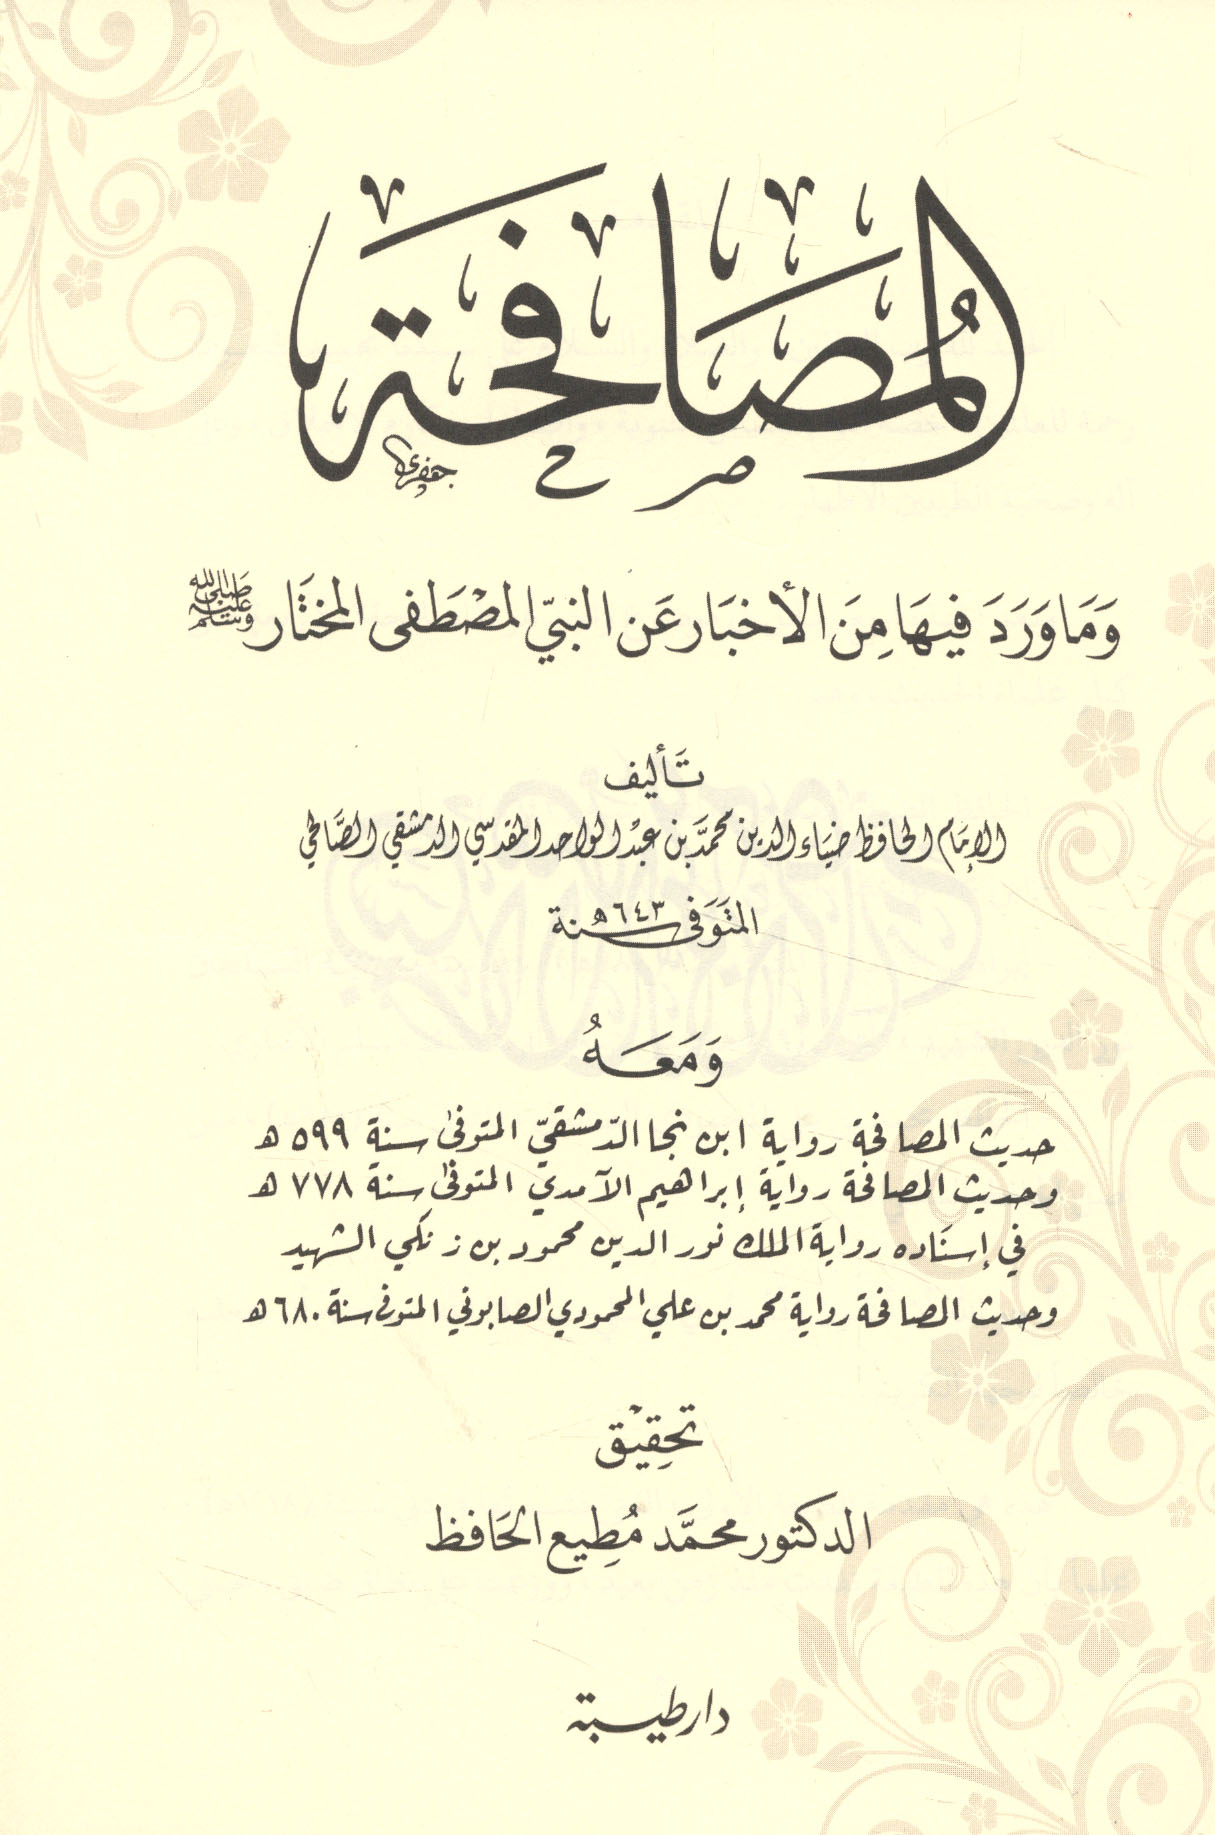 المصافحة
جعفري
وَمَا وَرَدَ فِيهَا مِنَ الأخبَار عَن النبيّ المصْطَفى المختَار ﷺ
تَأليف
الإمَام الحافظ ضيَاء الدين محمَّد بن عبْد الواحد المقدسي الدمشقي الصَّالحي
المتَوَفى سنة ٦٤٣ ه
وَمَعَهُ
حديث المصافحة رواية ابن نجا الدّمشقيّ المتوفى سنة ٥٩٩ ه
وحديث المصافحة رواية إبراهيم الآمدي المتوفى سنة ٧٧٨ ه
في إسنَاده رواية الملك نور الدين محمود بن زنكي الشهيد
وحديث المصافحة رواية محمد بن علي المحمودي الصابوني المتوفى سنة ٦٨٠ ه
تحقِيْق
الدكتور محمَّد مُطِيع الحَافظ
دار طيبة